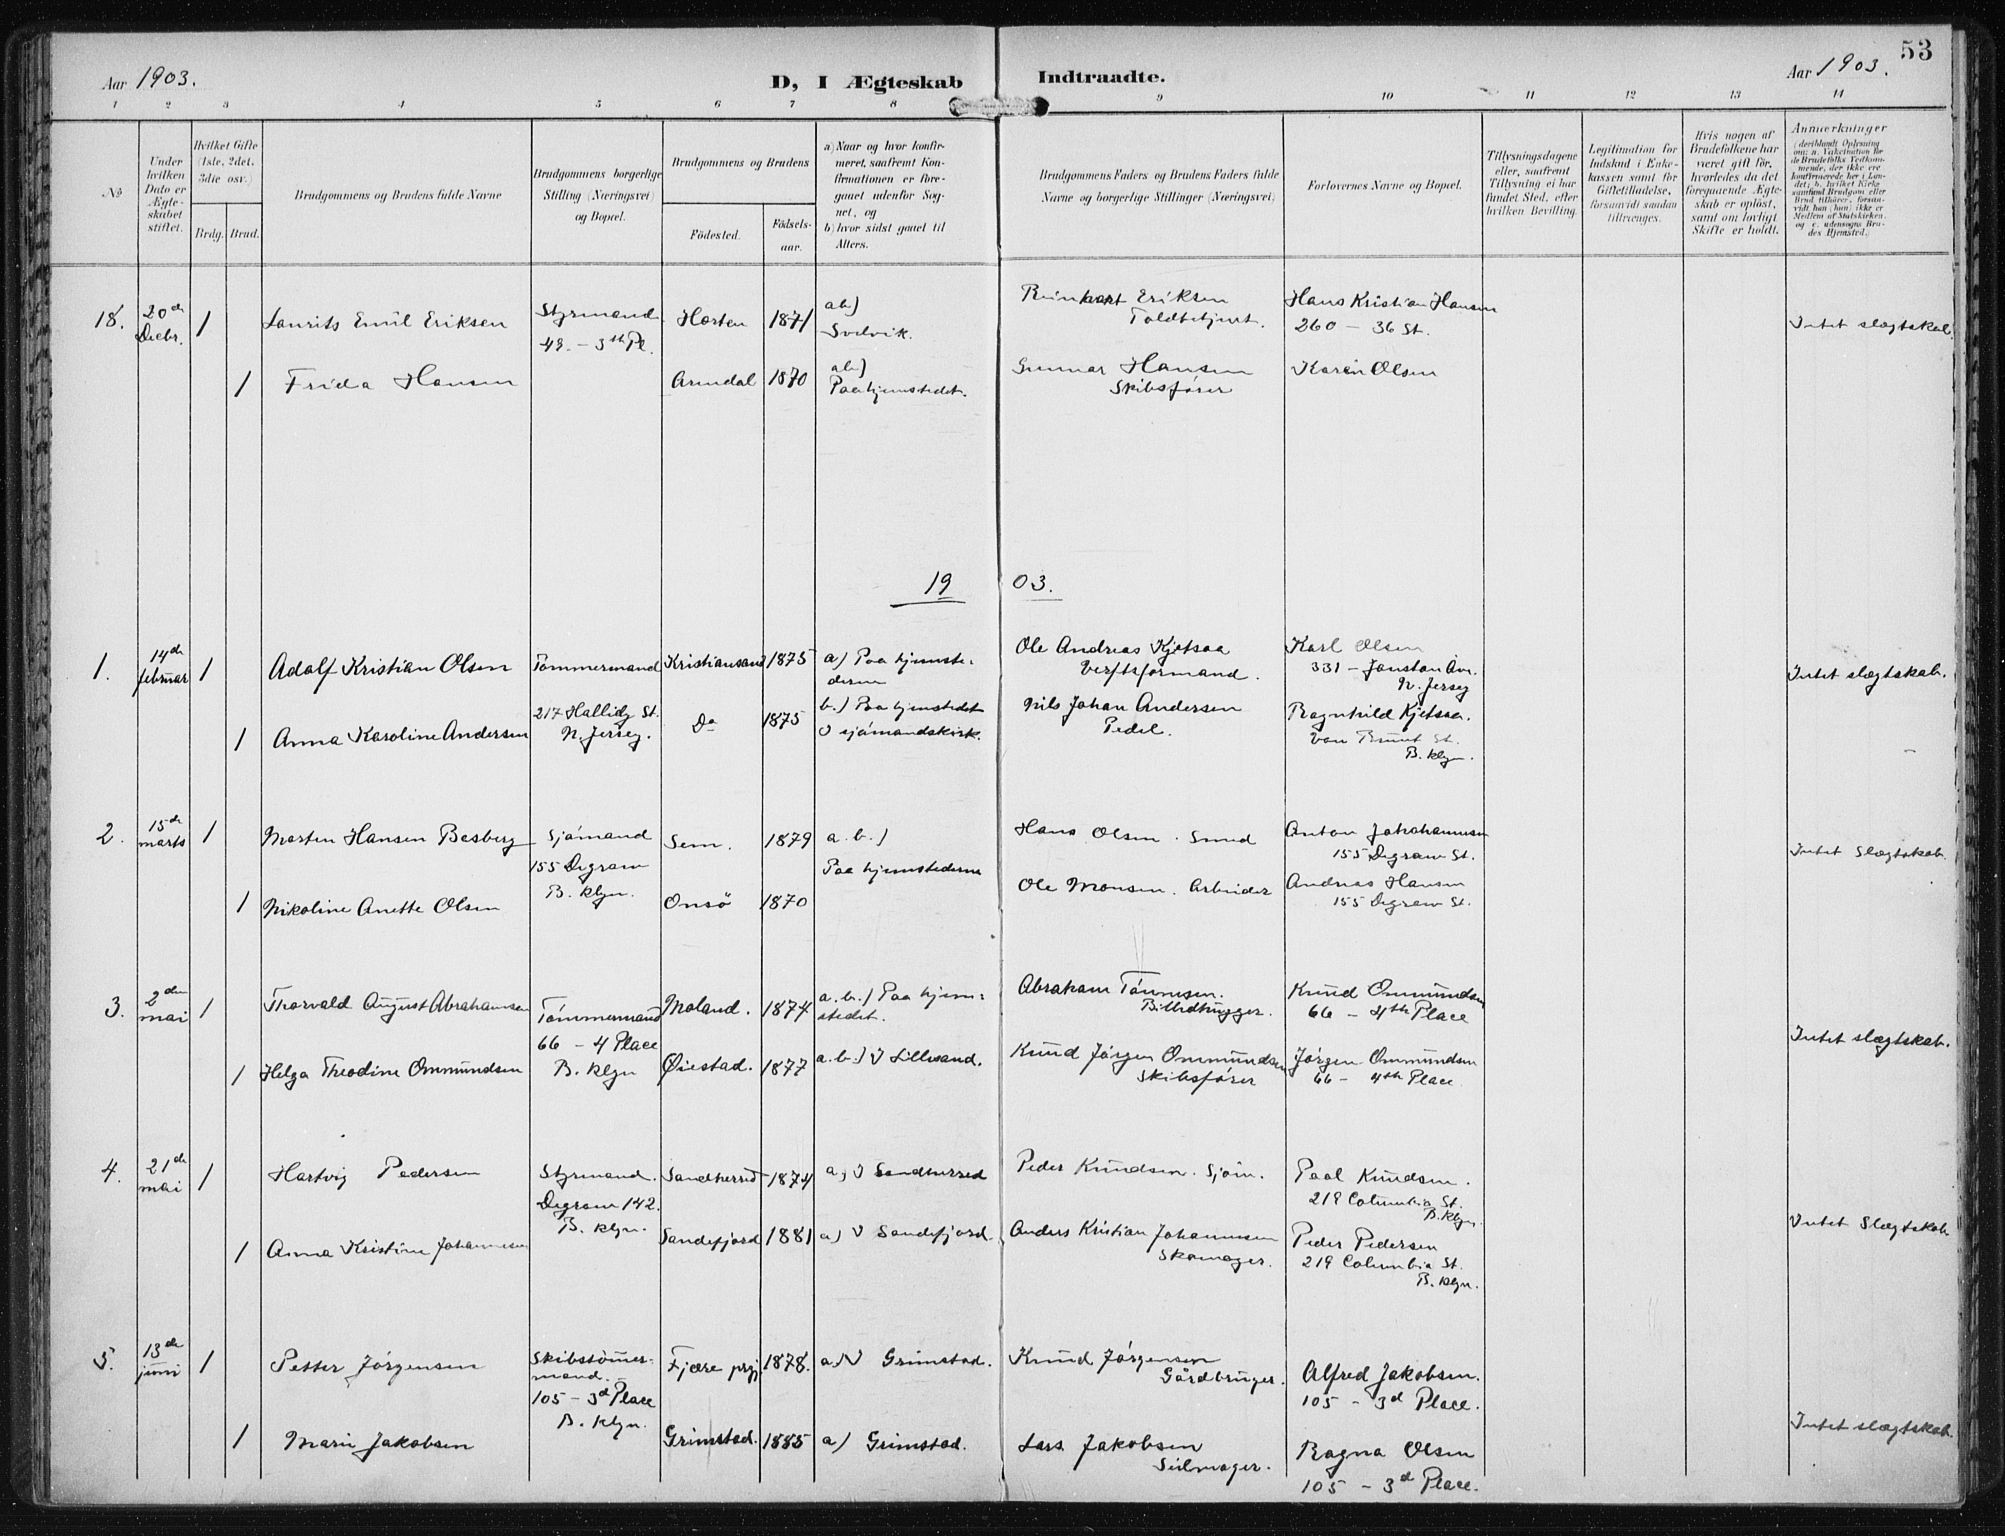 53
Aar 1903.
D, I Ægteskab Indtraadte.
Aar 1903.
1 2 3 4 5 6 7 8 9 10 11 12 13 14
No
Under hvilken Dato er Ægteskabet stiftet.
Hvilket Gifte (1ste, 2det, 3die osv.)
Brdg. Brud.
Brudgommens og Brudens fulde Navne
Brudgommens borgerlige Stilling (Næringsvei) og Bopæl.
Brudgommens og Brudens
Fødested.
Fødselsaar.
a) Naar og hvor konfirmeret, saafremt Konfirmationen er foregaaet udenfor Sognet, og
b) hvor sidst gaaet til Alters.
Brudgommens Faders og Brudens Faders fulde Navne og borgerlige Stillinger (Næringsvei)
Forlovernes Navne og Bopæl.
Tillysningsdagene eller, saafremt Tillysning ei har fundet Sted, efter hvilken Bevilling.
Legitimation for Indskud i Enkekassen samt for Giftetilladelse, forsaavidt saadan tiltrænges.
Hvis nogen af Brudefolkene har været gift før, hvorledes da det foregaaende Ægteskab er opløst, samt om lovligt Skifte er holdt.
Anmerkninger
(deriblandt Oplysning om: a. Vakcination for de Brudefolks Vedkommende, der ikke ere konfirmerede her i Landet; b. hvilket Kirkesamfund Brudgom eller Brud tilhører, forsaavidt han (hun) ikke er Medlem af Statskirken, og c. udensogns Brudes Hjemsted.)
18. 20de Decbr. 1 Laurits Emil Eriksen Styrmand 49. – 3th Pl. Horten 1871 ab) Svelvik. Reinhart Eriksen Toldbetjent. Hans Kristian Hansen 260 – 36 St. Intet slægtskab
1 Frida Hansen Arendal 1870 ab) Paa hjemstedet. Gunnar Hansen Skibsfører Karen Olsen
1903.
1. 14de februar 1 Adolf Kristian Olsen Tømmermand Kristiansand 1875 a) Paa hjemstederne Ole Andreas Kjetsaa Verftsformand. Karl Olsen 331 – Jonston Av. N. Jersey Intet slægtskab.
1 Anna Karoline Andersen 217 Halliday St. N. Jersey. Do 1875 b.) Paa hjemstedet I sjømandskirk. Nils Johan Andersen Pedel. Ragnhild Kjetsaa. Van Brunt St. B. klyn.
2. 15de marts 1 Morten Hansen Besberg Sjømand 155 Degraw B. klyn. Sem. 1879 a. b.) Paa hjemstederne Hans Olsen. Smed Anton Johannesen 155 Degraw St. Intet Slægtskab.
1 Nikoline Anette Olsen Onsø 1870 Ole Monsen. Arbeider Andreas Hansen 155 Degraw St.
3. 2den mai 1 Thorvald August Abrahamsen Tømmermand 66 – 4 Place B. klyn Moland. 1874 a. b.) Paa hjemstedet. Abraham Tønnesen. Billedhugger. Knud Ommundsen 66 – 4th Place Intet slægtskab.
1 Helga Theodine Ommundsen Øiestad. 1877 a. b.) I Lillesand. Knud Jørgen Ommundsen Skibsfører Jørgen Ommundsen 66 – 4th Place
4. 21de mai 1 Hartvig Pedersen Styrmand. Degraw 142. B. klyn. Sandherred 1874 a) I Sandherred Peder Knudsen. Sjøm. Paal Knudsen. 219 Columbia St. B. klyn. Intet Slægtskab
1 Anna Kristine Johannesen Sandefjord 1881 a) I Sandefjord. Anders Kristian Johannesen Skomager. Peder Pedersen 219 Columbia St. B. klyn.
5. 13de juni 1 Petter Jørgensen Skibstømmermand. 105 – 3d Place B. klyn. Fjære prgj. 1878. a.) I Grimstad. Knud Jørgensen Gårdbruger. Alfred Jakobsen. 105 – 3d Place. Intet slægtskab.
1 Marie Jakobsen Grimstad. 1885 a) Grimstad. Lars Jakobsen Seilmager. Ragna Olsen 105 – 3d Place.